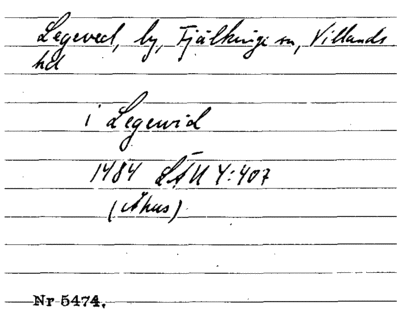 Legeved, by, Fjälkinge sn, Villands
hd
i Legewid
1484 LÄU 4:407
(Åhus)
Nr 5474.